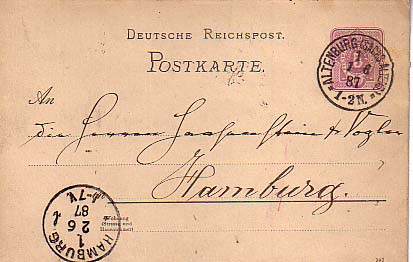 DEUTSCHE REICHSPOST.
POSTKARTE.
ALTENBURG
1
1 6
87
1-2N.
An
die Herren Haasenstein & Vogler
Hamburg.
Wohnung
(Strasse und
Hausnummer)
HAMBURG
1
2 6
87
6-7V.